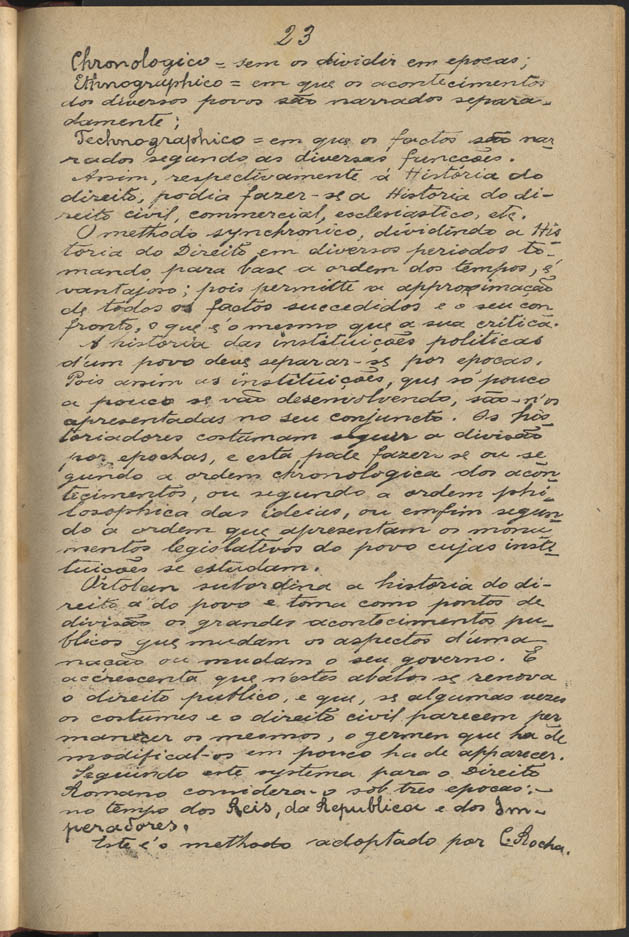 23
Chronologico = sem os dividir em epocas;
Ethnographico = em que os acontecimentos
dos diversos povos são narrados separa-
damente;
Technographico = em que os factos são nar
rados segundo as diversas funcções.
Assim, respectivamente á Historia do
direito, podia fazer-se a Historia do di-
reito civil, commercial, esclesiastico, etc.
O methodo synchronico, dividindo a His
toria do Direito em diversos periodos to-
mando para base a ordem dos tempos, é
vantajoso; pois permitte a approximação
de todos os factos succedidos e o seu con
fronto, o que é o mesmo que a sua critica.
A historia das instituições politicas
d'um povo deve separar-se por epocas.
Pois assim as instituições, que só pouco
a pouco se vão desenvolvendo, são-n'os
apresentadas no seu conjuncto. Os his
toriadores costumam seguir a divisão
por epochas, e esta pode fazer-se ou se
gundo a ordem chronologica dos acon
tecimentos, ou segundo a ordem phi-
losophica das ideias, ou emfim segun
do a ordem que apresentam os monu-
mentos legislativos do povo cujas insti-
tuicões se estudam.
Ortolan subordina a historia do di-
reito á do povo e toma como pontos de
divisão os grandes acontecimentos pu-
blicos que mudam os aspectos d'uma
nação ou mudam o seu governo. E
accrescenta que n'estes abalos se renova
o direito publico, e que, se algumas vezes
os costumes e o direito civil parecem per
manecer os mesmos, o germen que ha de
modifical-os em pouco ha de apparecer.
Seguindo este systema para o Direito
Romano considera-o sob tres epocas:-
no tempo dos Reis, da Republica e dos Im-
peradores.
Este é o methodo adoptado por C. Rocha.